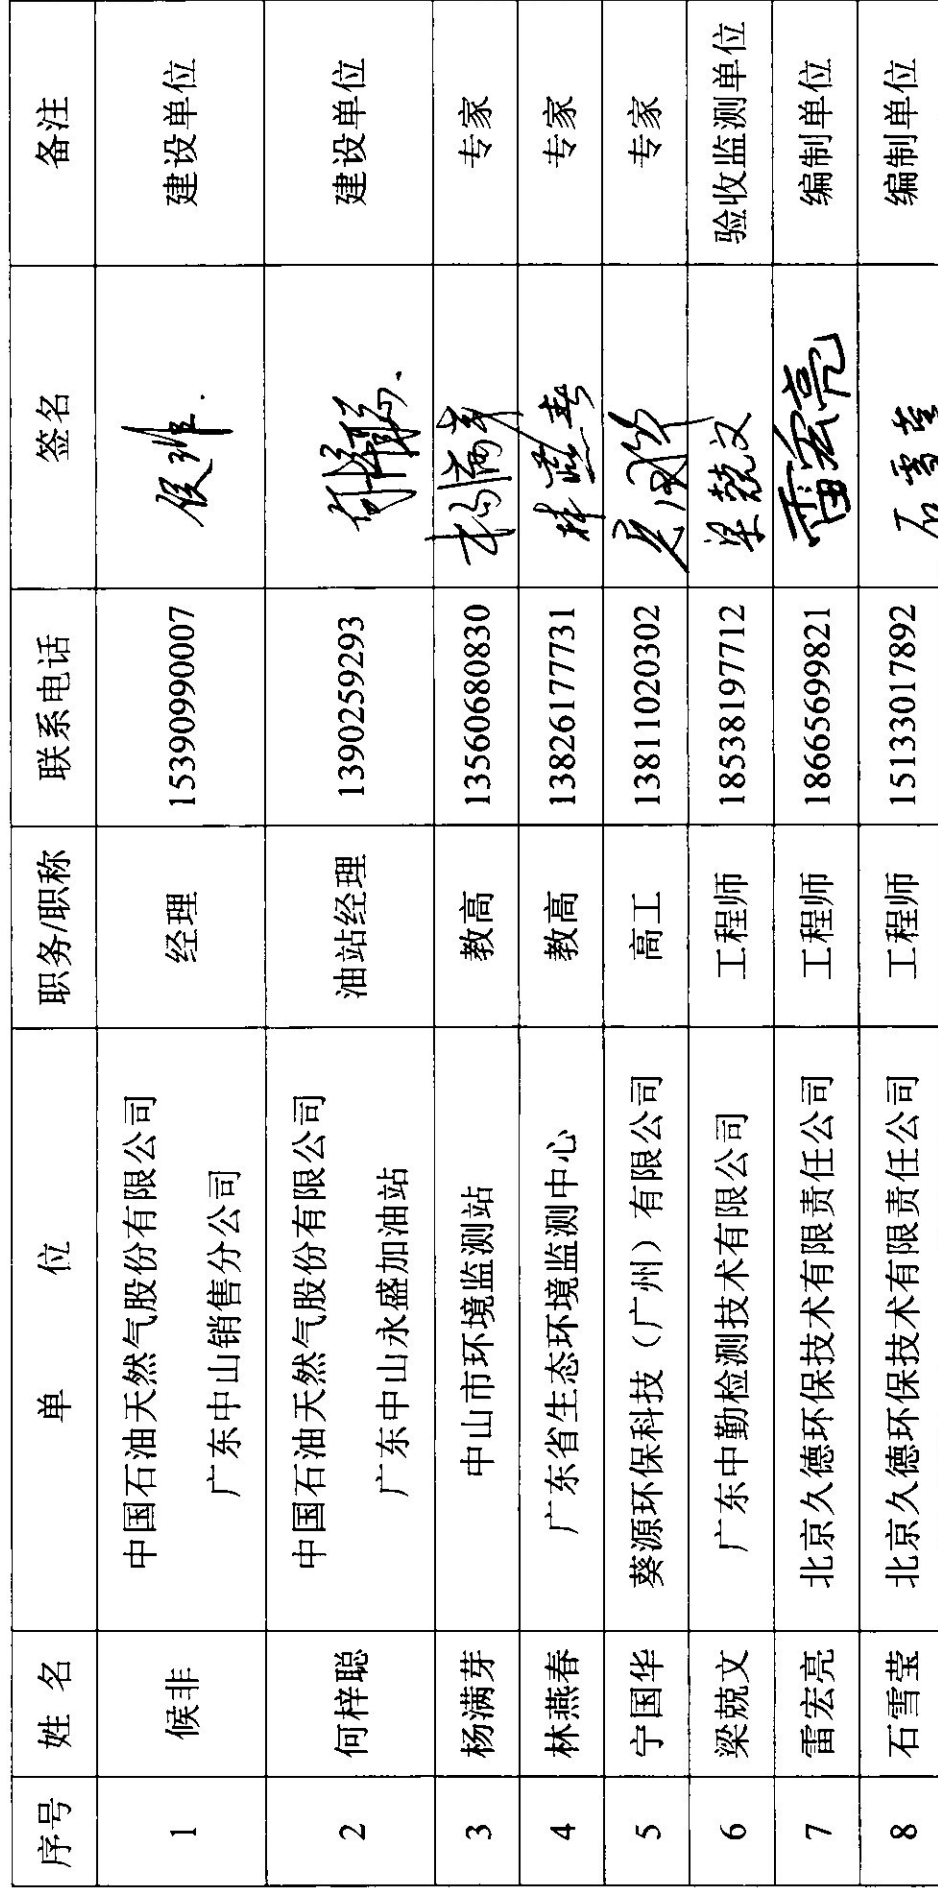 序号 姓 名 单 位 职务/职称 联系电话 签名 备注
1 候非 中国石油天然气股份有限公司 经理 15390990007 侯非 建设单位
广东中山销售分公司
2 何梓聪 中国石油天然气股份有限公司 油站经理 13902592923 建设单位
广东中山永盛加油站
3 杨满芽 中山市环境监测站 教高 13560680830 杨满芽 专家
4 林燕春 广东省生态环境监测中心 教高 13826177731 林燕春 专家
5 宁国华 葵源环保科技（广州）有限公司 高工 13811020302 专家
6 梁兢文 广东中勤检测技术有限公司 工程师 18538197712 梁兢文 验收监测单位
7 雷宏亮 北京久德环保技术有限责任公司 工程师 18665699821 雷宏亮 编制单位
8 石雪莹 北京久德环保技术有限责任公司 工程师 15133017892 石雪莹 编制单位